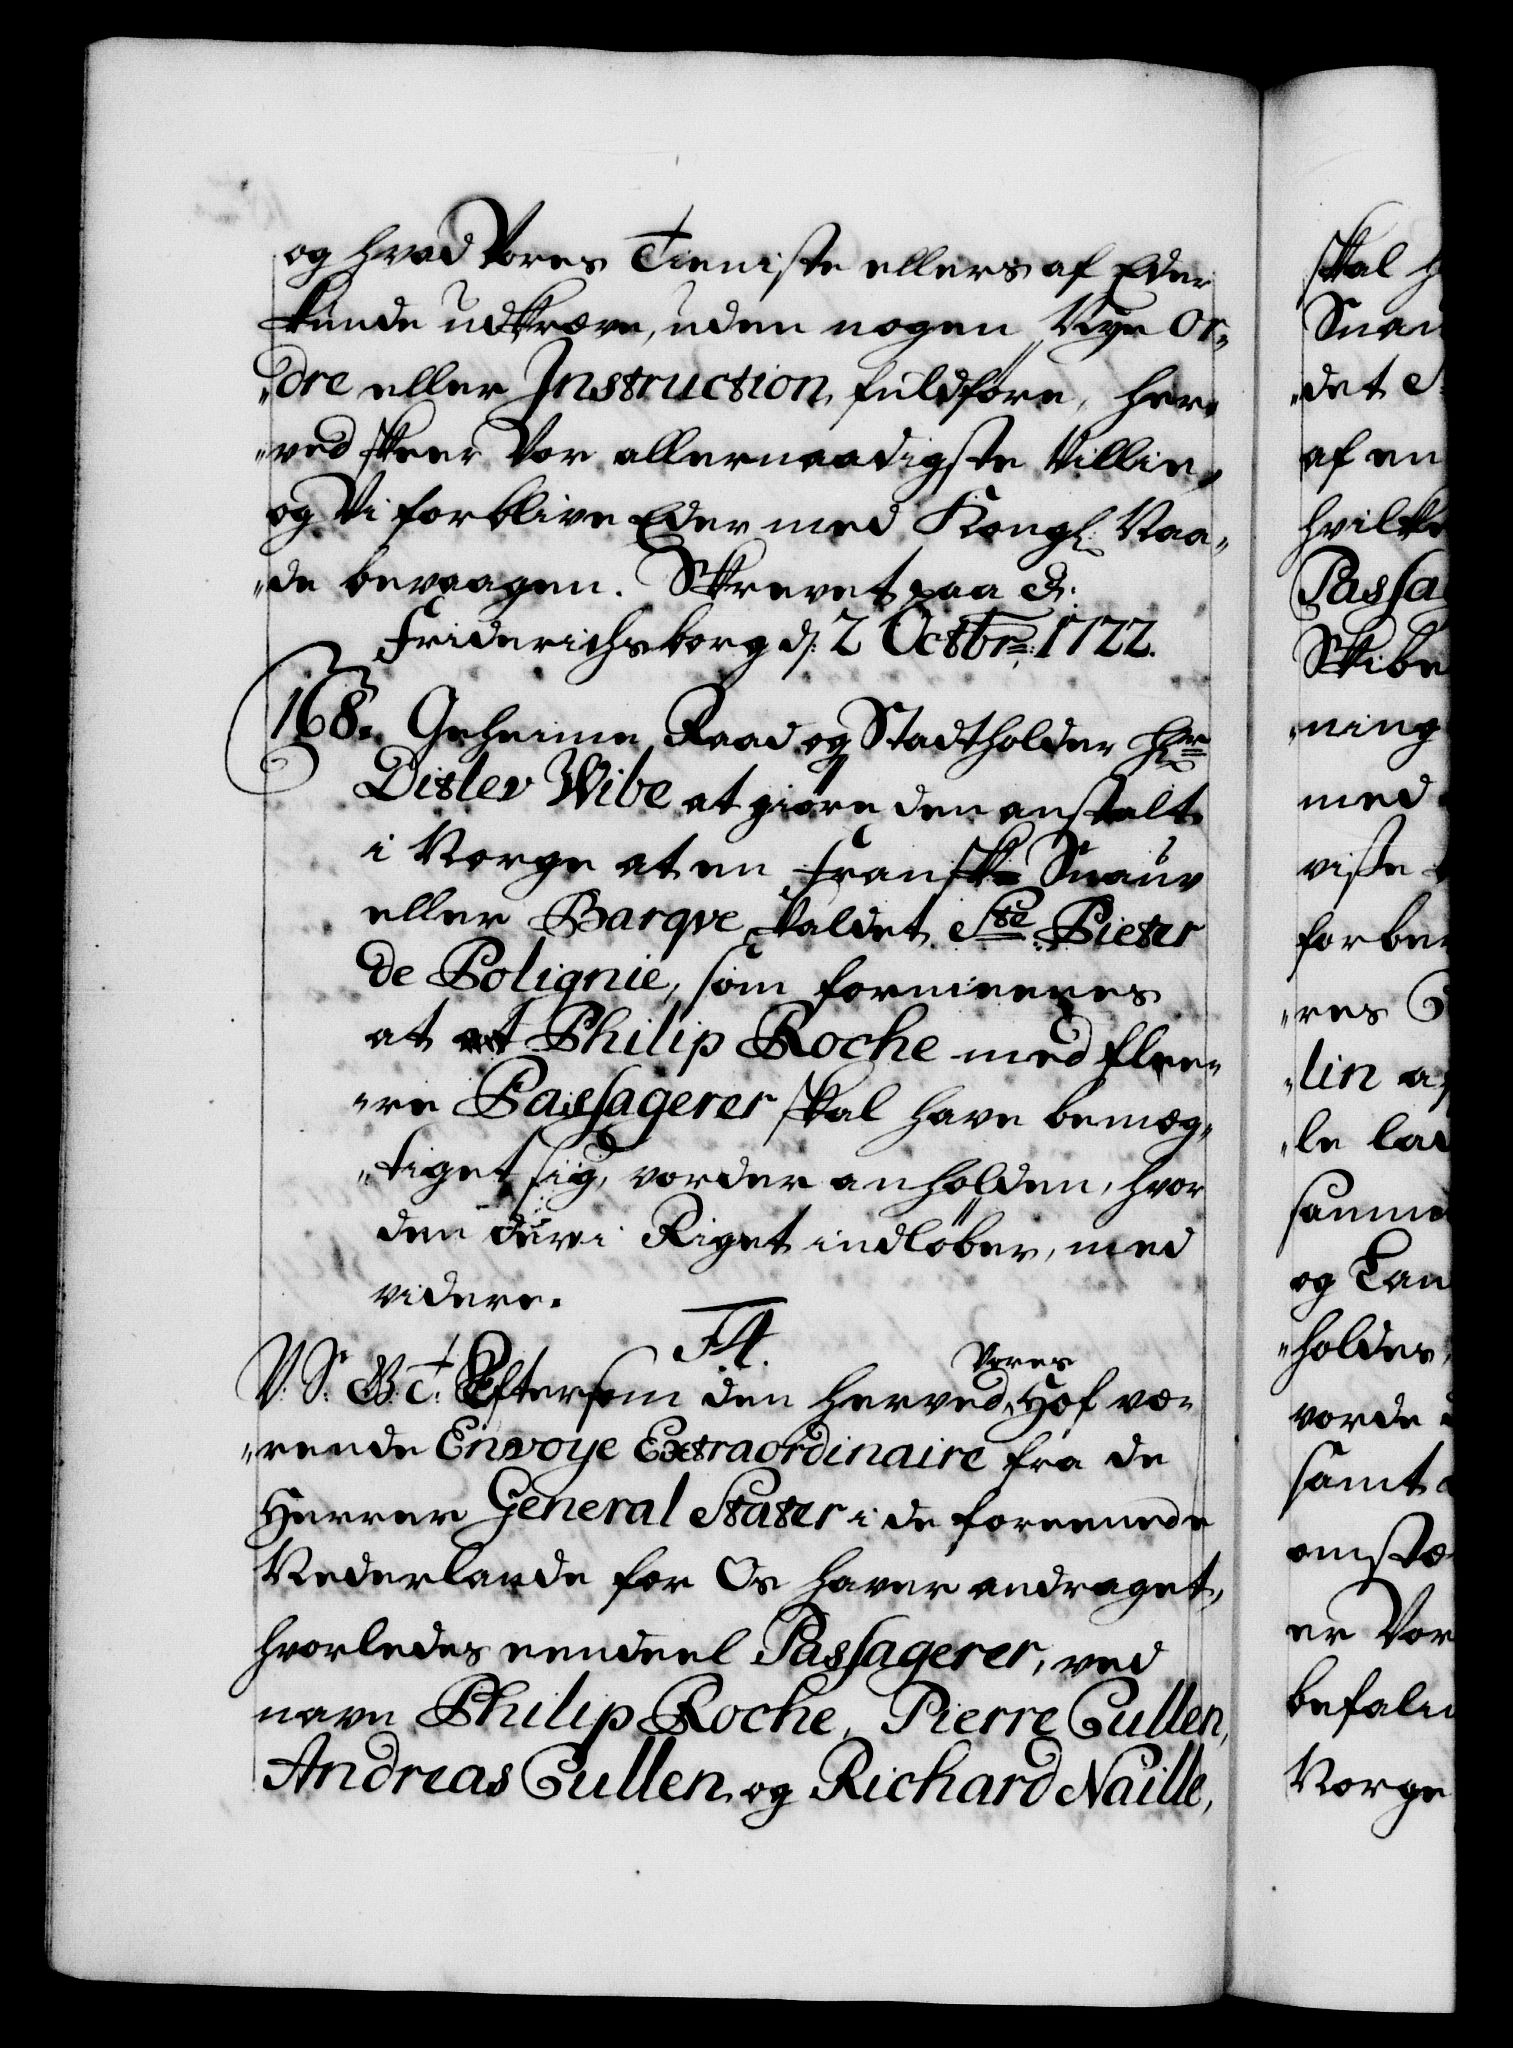 og hvad Vores Tieniste ellers af Eder
kunde udkræve, uden nogen Nye Or-
"dre eller Instruction, fuldføre, her-
"ved skeer Vor allernaadigste Villie,
og Vi forblive Eder med Kongl: Naa-
"de bevaagen. Skrevet paa
Friderichsborg d: 2 Octobr: 1722.
168. Geheime Raad og Stadtholder Hr
Ditlev Wibe at giøre den anstalt
i Norge at en Fransk Snauv
eller Barqve, kaldet Ste Pieter
de Polignie, som formeenes
at Philip Roche med flee-
"re Passagerer skal have bemæg-
"tiget sig, vorder anholden, hvor
den der i Riget indløber, med
videre.
F4.
V. S. G. T. Eftersom den her ved Vores Hof væ-
"rende Envoye Extraordinaire fra de
Herrer General Stater i de foreenede
Nederlande for Os haver andraget,
hvorledes eendeel Passagerer, ved
navn Philip Roche, Pierre Cullen,
Andreas Cullen, og Richard Naille,
skal
Snau
"det
af en
hvilke
Passa
Skibe
"ning
med
visse
forbe
"res
"lin
"le
samme
og
"holdes
vorde
samt
omstæ
er Vor
befali
Norge